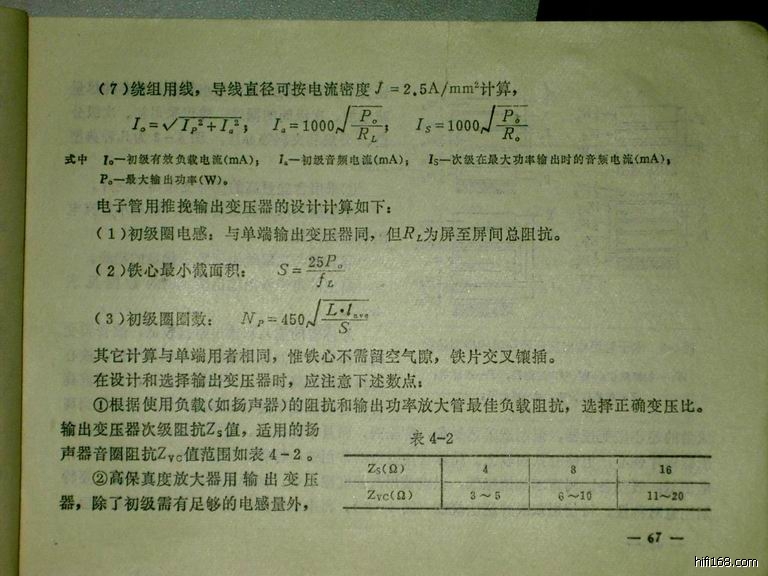 (7)绕组用线，导线直径可按电流密度J=2.5A/mm²计算，
I₀=√(I_P²+I_a²)； I_a=1000√(P_o/R_L)； I_S=1000√(P_o/R_o)
式中 I₀—初级有效负载电流(mA)； I_a—初级音频电流(mA)； I_S—次级在最大功率输出时的音频电流(mA)；
P_o—最大输出功率(W)。
电子管用推挽输出变压器的设计计算如下：
(1)初级圈电感：与单端输出变压器同，但R_L为屏至屏间总阻抗。
(2)铁心最小截面积： S=25P_o/f_L
(3)初级圈圈数： N_P=450√(L·l_ave/S)
其它计算与单端用者相同，惟铁心不需留空气隙，铁片交叉镶插。
在设计和选择输出变压器时，应注意下述数点：
①根据使用负载(如扬声器)的阻抗和输出功率放大管最佳负载阻抗，选择正确变压比。
输出变压器次级阻抗Z_S值，适用的扬
声器音圈阻抗Z_VC值范围如表4-2。
②高保真度放大器用输出变压
器，除了初级需有足够的电感量外，
表4-2
Z_S(Ω) 4 8 16
Z_VC(Ω) 3～5 6～10 11～20
— 67 —
hifi168.com